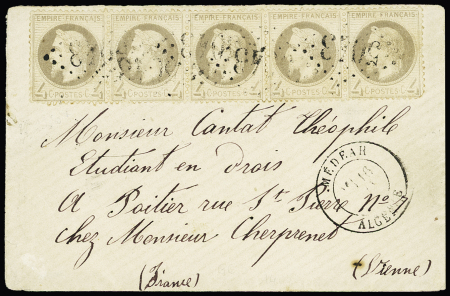 EMPIRE FRANÇAIS EMPIRE FRANÇAIS EMPIRE FRANÇAIS EMPIRE FRANÇAIS EMPIRE FRANÇAIS
4 C POSTES C 4 4 C POSTES C 4 4 C POSTES C 4 4 C POSTES C 4 4 C POSTES C 4
Monsieur Cantat Théophile
Etudiant en Drois
A Poitier rue St Pierre No
chez Monsieur Cherprenet
(France)
(Vienne)
MÉDÉAH
ALGERIE